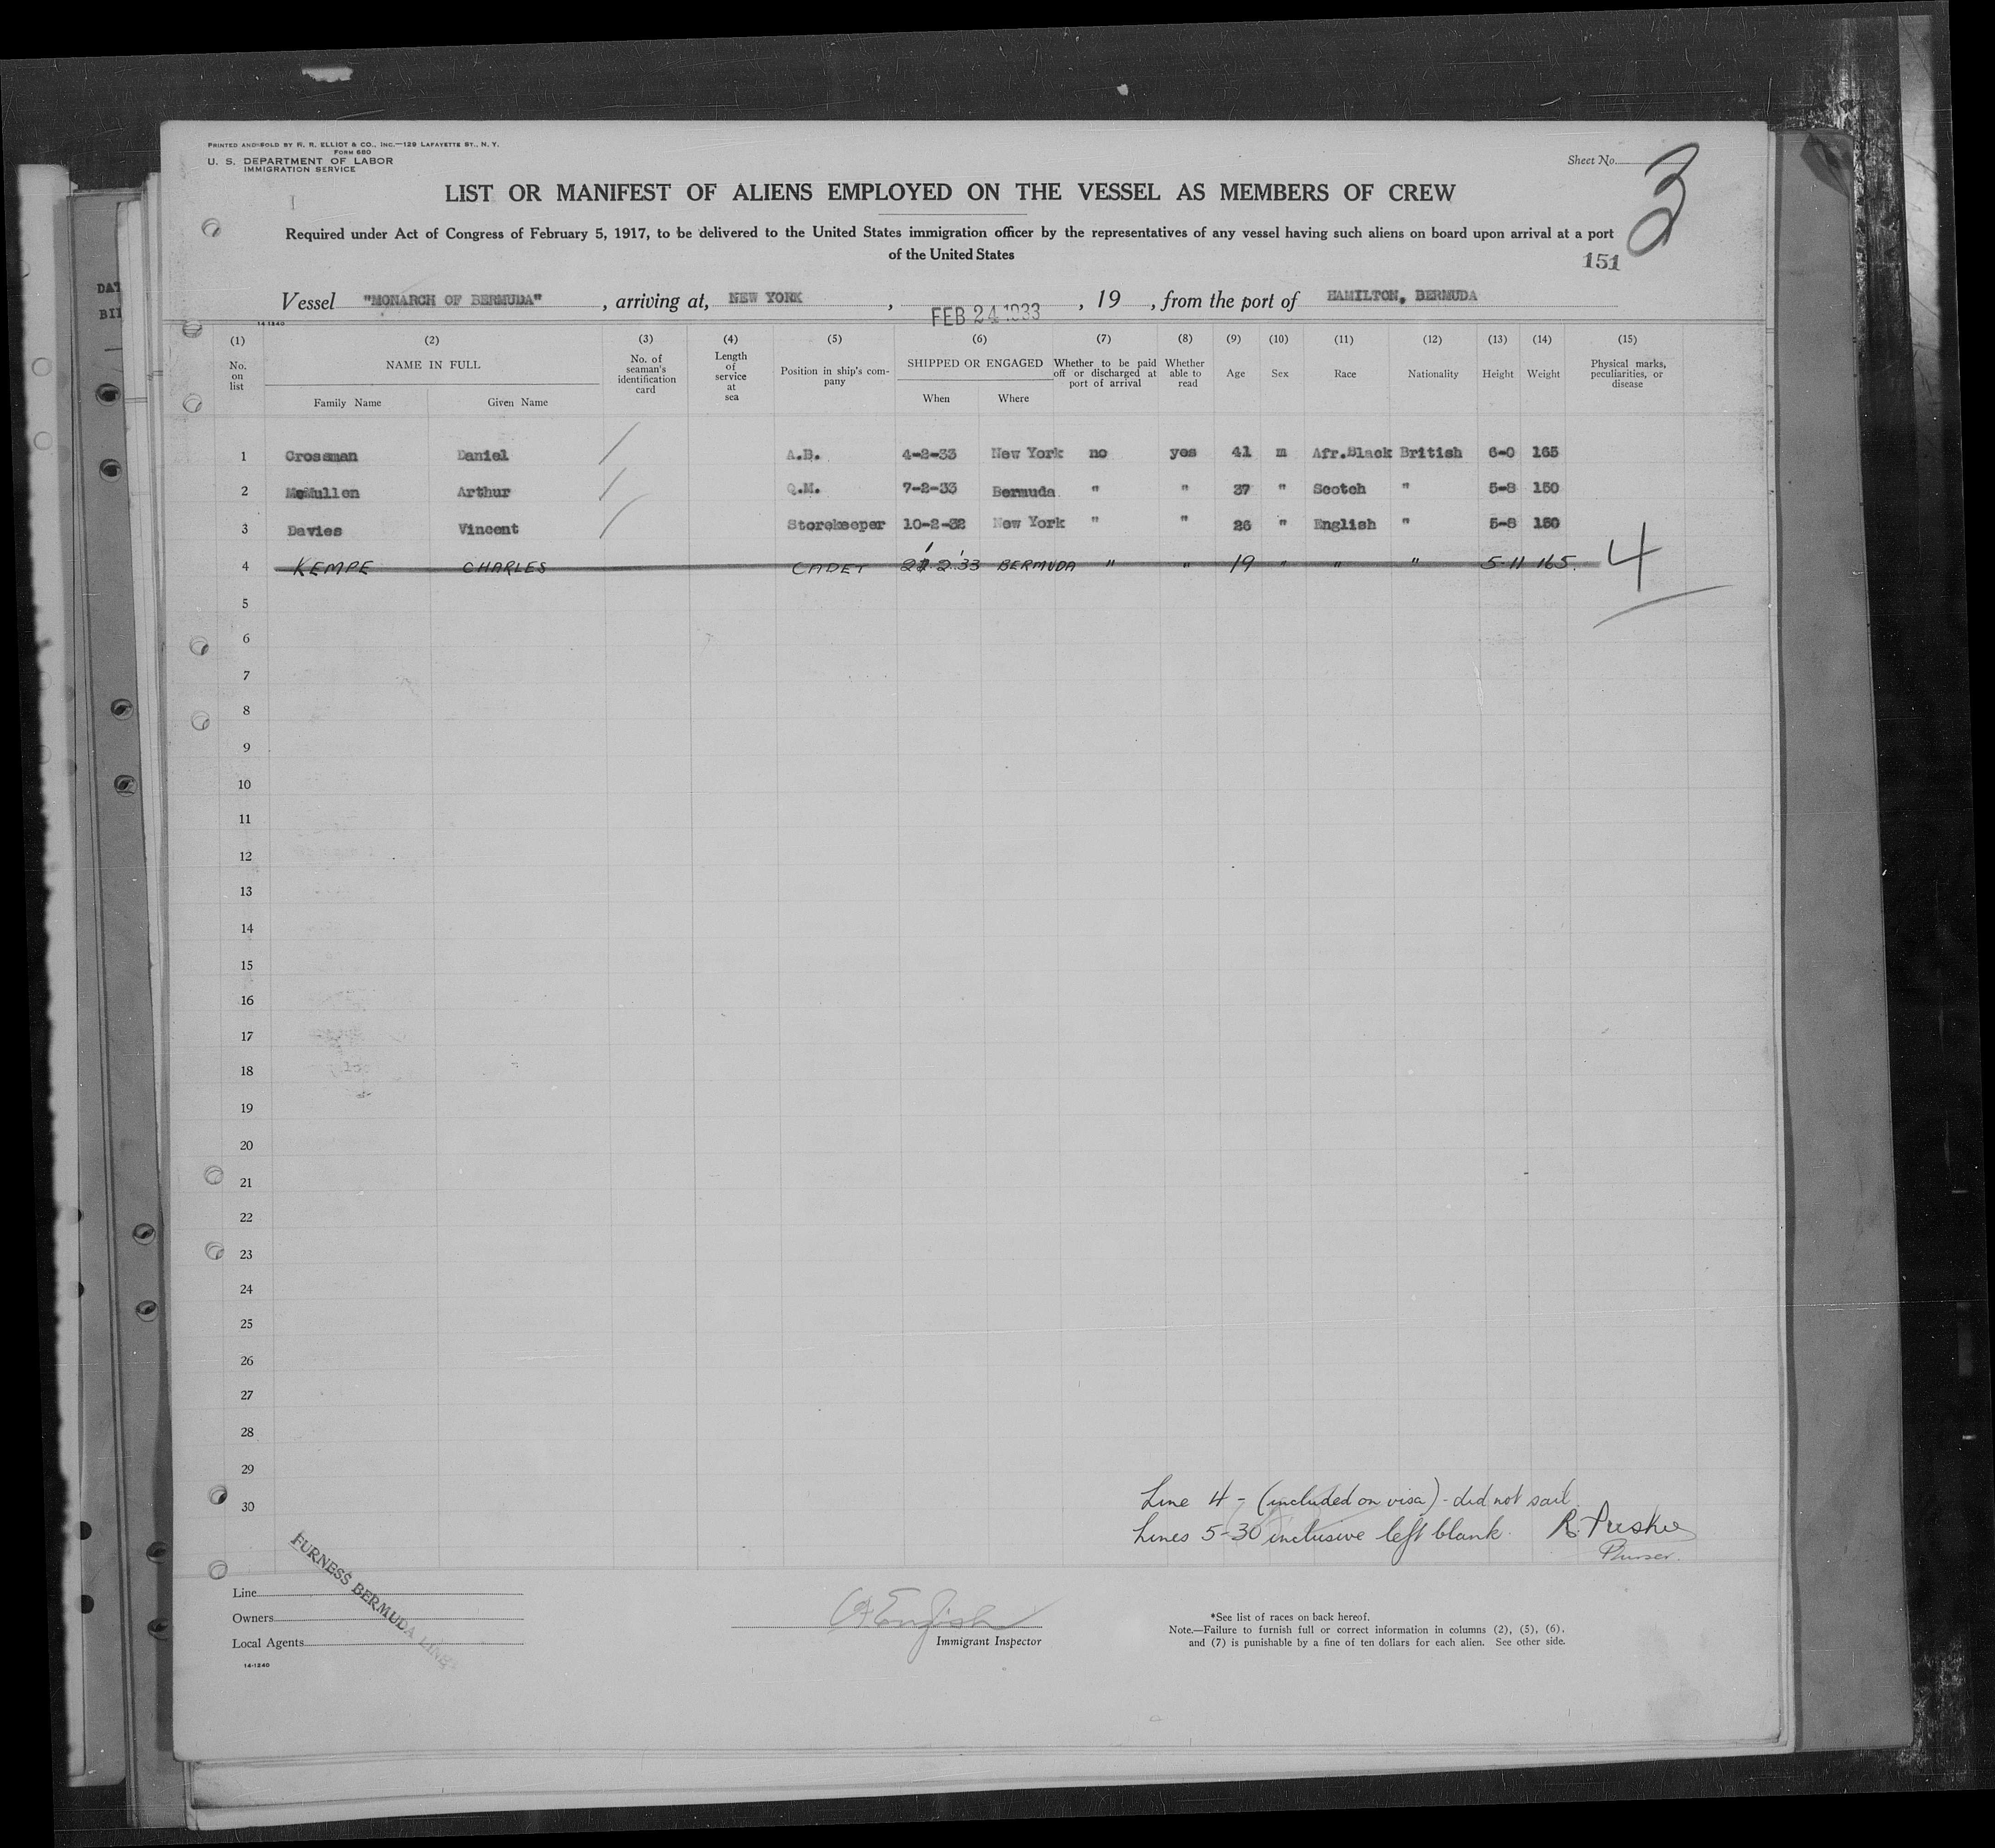 PRINTED AND SOLD BY R. R. ELLIOT & CO., INC.—129 LAFAYETTE ST., N. Y.
FORM 680
U. S. DEPARTMENT OF LABOR
IMMIGRATION SERVICE
Sheet No. 3
LIST OR MANIFEST OF ALIENS EMPLOYED ON THE VESSEL AS MEMBERS OF CREW
Required under Act of Congress of February 5, 1917, to be delivered to the United States immigration officer by the representatives of any vessel having such aliens on board upon arrival at a port
of the United States
151
Vessel "MONARCH OF BERMUDA", arriving at, NEW YORK, FEB 24 1933, 19 , from the port of HAMILTON, BERMUDA
14-1240
(1) (2) (3) (4) (5) (6) (7) (8) (9) (10) (11) (12) (13) (14) (15)
No. on list NAME IN FULL Family Name Given Name No. of seaman's identification card Length of service at sea Position in ship's company SHIPPED OR ENGAGED When Where Whether to be paid off or discharged at port of arrival Whether able to read Age Sex Race Nationality Height Weight Physical marks, peculiarities, or disease
1 Crossman Daniel / A.B. 4-2-33 New York no yes 41 m Afr.Black British 6-0 165
2 McMullen Arthur / Q.M. 7-2-33 Bermuda " " 37 " Scotch " 5-8 150
3 Davies Vincent / Storekeeper 10-2-32 New York " " 26 " English " 5-8 150
4 KEMPE CHARLES CADET 21-2-33 BERMUDA " " 19 " " " 5-11 165. 4
5
6
7
8
9
10
11
12
13
14
15
16
17
18
19
20
21
22
23
24
25
26
27
28
29
30
Line 4 - (included on visa) - did not sail.
Lines 5-30 inclusive left blank.
Purser.
FURNESS BERMUDA LINE
Line
Owners
Local Agents
14-1240
A English
Immigrant Inspector
*See list of races on back hereof.
Note.—Failure to furnish full or correct information in columns (2), (5), (6),
and (7) is punishable by a fine of ten dollars for each alien. See other side.